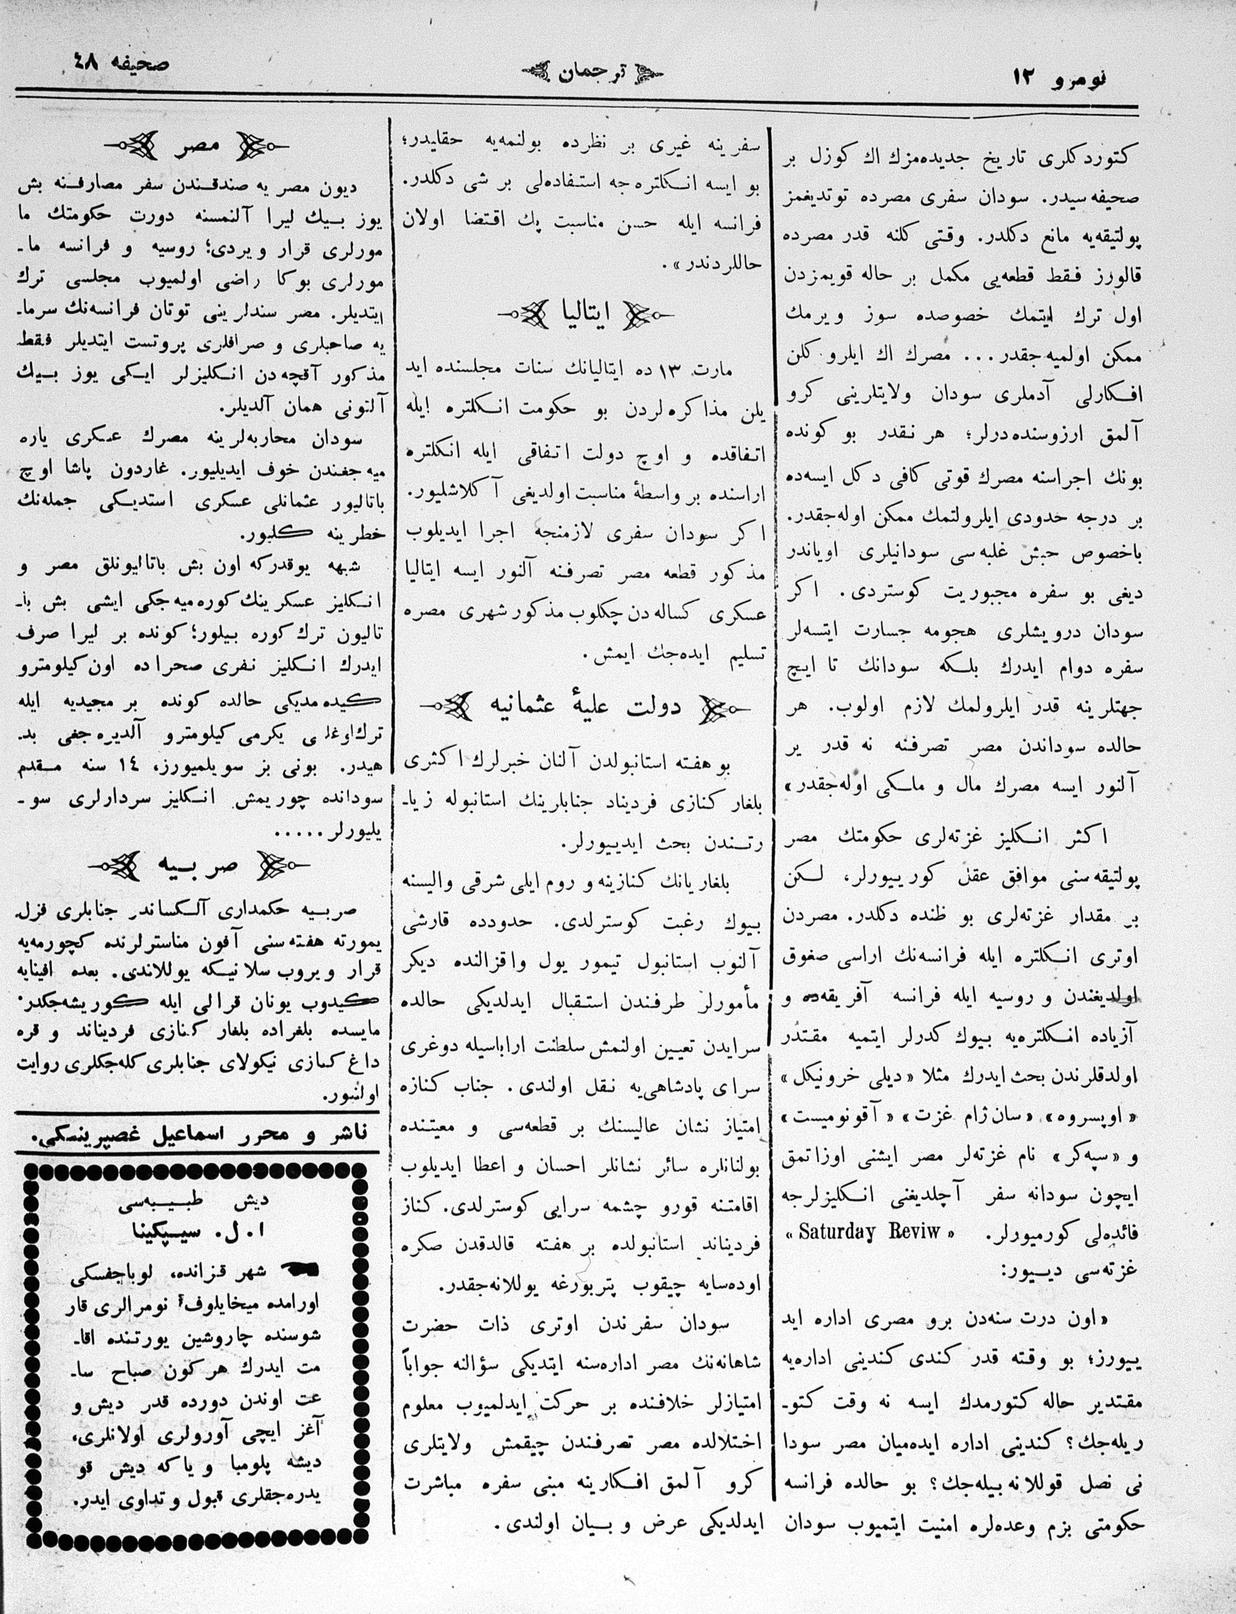 نومرو ١٢
ترجمان
صحیفه ٤٨
كتوردكلری تاریخ جدیده‌مزك اك كوزل بر
صحیفه سیدر. سودان سفری مصرده توتدیغمز
پولتیقه‌یه مانع دكلدر. وقتی كلنه قدر مصرده
قالورز فقط قطعه‌یی مكمل بر حاله قویمزدن
اول ترك ایتمك خصوصده سوز ویرمك
ممكن اولمیه جقدر... مصرك اك ایلرو كلن
افكارلی آدملری سودان ولایتلرینی كرو
آلمق ارزوسنده درلر؛ هر نقدر بو كونده
بونك اجراسنه مصرك قوتی كافی دكل ایسه‌ده
بر درجه حدودی ایلرولتمك ممكن اوله‌جقدر.
باخصوص حبش غلبه سی سودانیلری اویاندر
دیغی بو سفره مجبوریت كوستردی. اكر
سودان درویشلری هجومه جسارت ایتسه‌لر
سفره دوام ایدرك بلكه سودانك تا ایچ
جهتلرینه قدر ایلرولمك لازم اولوب. هر
حالده سوداندن مصر تصرفنه نه قدر یر
آلنور ایسه مصرك مال و ملكی اوله‌جقدر»
اكثر انكلیز غزته‌لری حكومتك مصر
پولتیقه سنی موافق عقل كوریپورلر، لكن
بر مقدار غزته‌لری بو ظنده دكلدر. مصردن
اوتری انكلتره ایله فرانسه‌نك اراسی صغوق
اولدیغندن و روسیه ایله فرانسه آفریقه‌ده و
آزیاده انكلتره‌یه بیوك كدرلر ایتمیه مقتدر
اولدقلرندن بحث ایدرك مثلا «دیلی خرونیكل»
«اوبسروه»، «سان ژام غزت» «آقونومیست»
و «سپه‌كر» نام غزته‌لر مصر ایشنی اوزاتمق
ایچون سودانه سفر آچلدیغنی انكلیزلرجه
فائده‌لی كورمیورلر. «Saturday Reviw»
غزته‌سی دیپور:
«اون درت سنه‌دن برو مصری اداره اید
یپورز؛ بو وقته قدر كندی كندینی اداره‌یه
مقتدیر حاله كتورمدك ایسه نه وقت كتو-
ریله‌جك؟ كندینی اداره ایده‌میان مصر سودا
نی نصل قوللانه بیله‌جك؟ بو حالده فرانسه
حكومتی بزم وعده‌لره امنیت ایتمیوب سودان
سفرینه غیری بر نظرده بولنمه‌یه حقلیدر؛
بو ایسه انكلتره جه استفاده‌لی بر شی دكلدر.
فرانسه ایله حسن مناسبت پك اقتضا اولان
حاللردندر».
ایتالیا
مارت ١٣ ده ایتالیانك سنات مجلسنده اید
یلن مذاكره‌لردن بو حكومت انكلتره ایله
اتفاقده و اوچ دولت اتفاقی ایله انكلتره
اراسنده بر واسطهٔ مناسبت اولدیغی آكلاشلیور.
اكر سودان سفری لازمنجه اجرا ایدیلوب
مذكور قطعه مصر تصرفنه آلنور ایسه ایتالیا
عسكری كساله‌دن چكلوب مذكور شهری مصره
تسلیم ایده‌جك ایمش.
دولت علیهٔ عثمانیه
بو هفته استانبولدن آلنان خبرلرك اكثری
بلغار كنازی فردیناد جنابلرینك استانبوله زیا-
رتندن بحث ایدیپورلر.
بلغاریانك كنازینه و روم ایلی شرقی والیسنه
بیوك رغبت كوسترلدی. حدودده قارشی
آلنوب استانبول تیمور یول واقزالنده دیكر
مأمورلر طرفندن استقبال ایدلدیكی حالده
سرایدن تعیین اولنمش سلطنت اراباسیله دوغری
سرای پادشاهی‌یه نقل اولندی. جناب كنازه
امتیاز نشان عالیسنك بر قطعه‌سی و معیتنده
بولنانلره سائر نشانلر احسان و اعطا ایدیلوب
اقامتنه قورو چشمه سرایی كوسترلدی. كناز
فردیناند استانبولده بر هفته قالدقدن صكره
اوده‌سایه چیقوب پتربورغه یوللانه‌جقدر.
سودان سفرندن اوتری ذات حضرت
شاهانه‌نك مصر اداره‌سنه ایتدیكی سؤالنه جواباً
امتیازلر خلافنده بر حركت ایدلمیوب معلوم
اختلالده مصر تصرفندن چیقمش ولایتلری
كرو آلمق افكارینه مبنی سفره مباشرت
ایدلدیكی عرض و بیان اولندی.
مصر
دیون مصر یه صندقندن سفر مصارفنه بش
یوز بیك لیرا آلنمسنه دورت حكومتك ما
مورلری قرار ویردی؛ روسیه و فرانسه ما-
مورلری بوكا راضی اولمیوب مجلسی ترك
ایتدیلر. مصر سندلرینی توتان فرانسه‌نك سرما-
یه صاحبلری و صرافلری پروتست ایتدیلر فقط
مذكور آقچه‌دن انكلیزلر ایكی یوز بیك
آلتونی همان آلدیلر.
سودان محاربه‌لرینه مصرك عسكری یاره
میه جغندن خوف ایدیلیور. غاردون پاشا اوچ
باتالیور عثمانلی عسكری استدیكی جمله‌نك
خطرینه كلیور.
شبهه یوقدركه اون بش باتالیونلق مصر و
انكلیز عسكرینك كوره میه جكی ایشی بش با-
تالیون ترك كوره بیلور؛ كونده بر لیرا صرف
ایدرك انكلیز نفری صحراده اون كیلومترو
كیده‌مدیكی حالده كونده بر مجیدیه ایله
ترك اوغلی یكرمی كیلومترو آلدیره جغی بد-
هیدر. بونی بز سویلمیورز، ١٤ سنه مقدم
سودانده چوریمش انكلیز سردارلری سو-
یلیورلر.....
صربیه
صربیه حكمداری آلكساندر جنابلری قزل
یمورته هفته‌سنی آفون مناسترلرنده كچورمه‌یه
قرار ویروب سلانیكه یوللاندی. بعده افینایه
كیدوب یونان قرالی ایله كوریشه‌جكدر.
مایسده بلغراده بلغار كنازی فردیناند و قره
داغ كنازی نیكولای جنابلری كله‌جكلری روایت
اولنیور.
ناشر و محرر اسماعیل غصپرینسكی.
دیش طبیبه‌سی
ا. ل. سیپكینا
شهر قزانده، لوباجفسكی
اورامده میخایلوف نومرالری قار
شوسنده چاروشین یورتنده اقا-
مت ایدرك هر كون صباح سا-
عت اوندن دورده قدر دیش و
آغز ایچی آورولری اولانلری،
دیشه پلومبا و یاكه دیش قو
یدره‌جقلری قبول و تداوی ایدر.